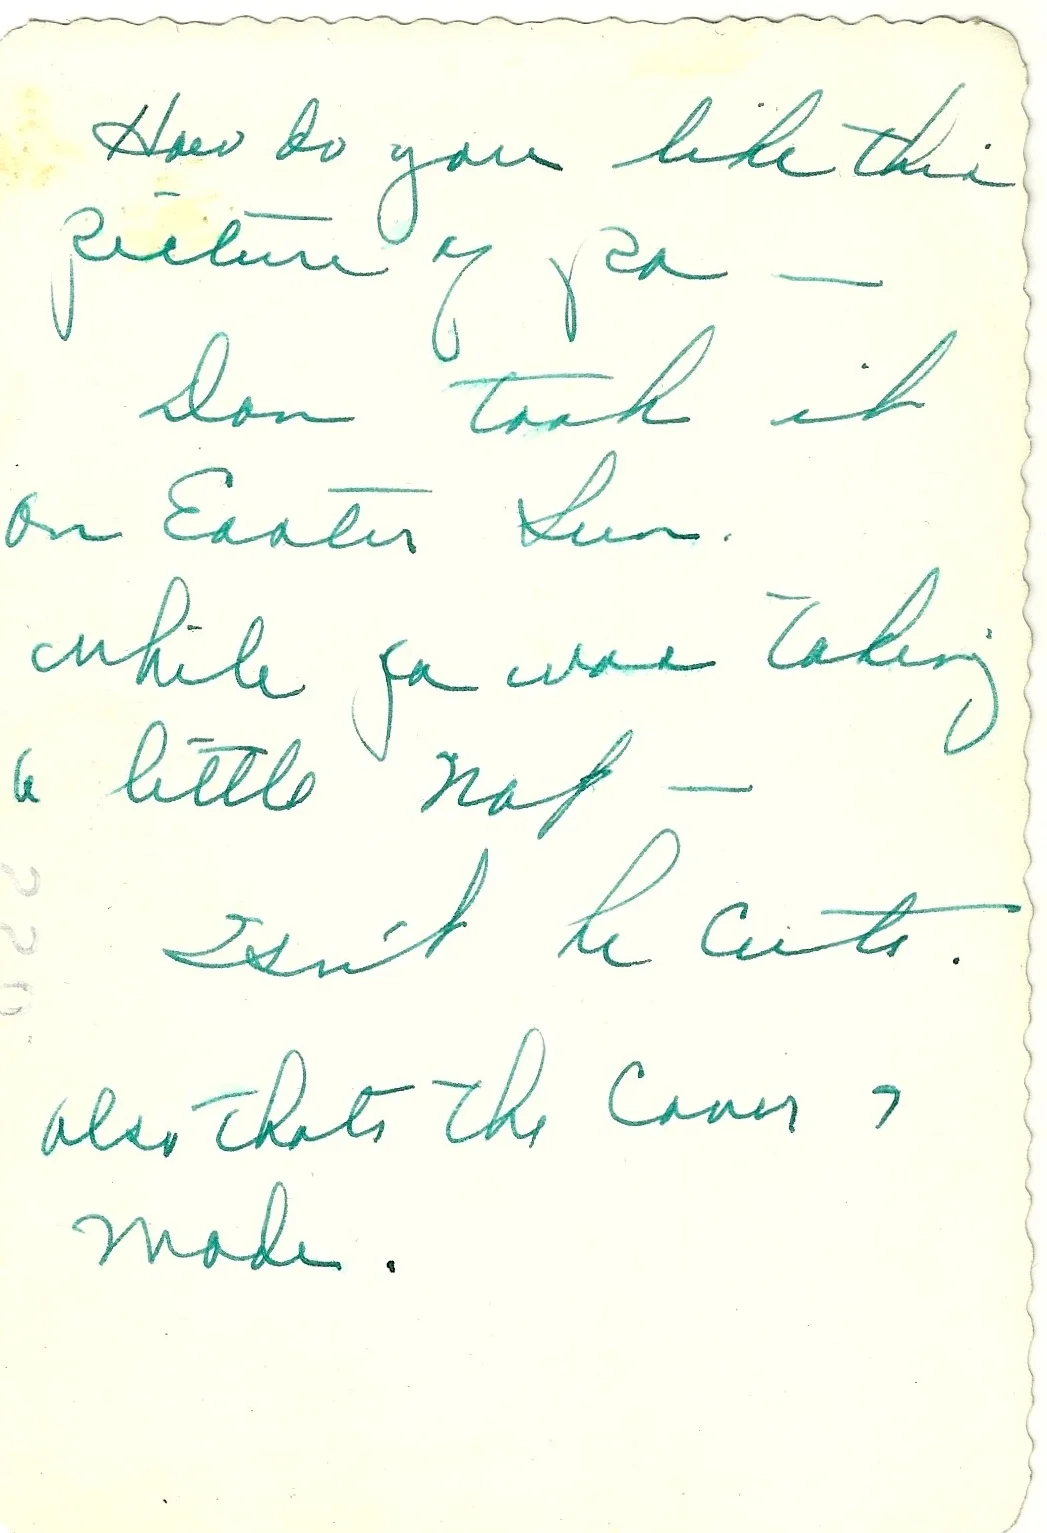 How do you like this
picture of pa —
Don took it
on Easter Sun.
while pa was taking
a little nap —
Isn't he cute.
also thats the Cover I
made.